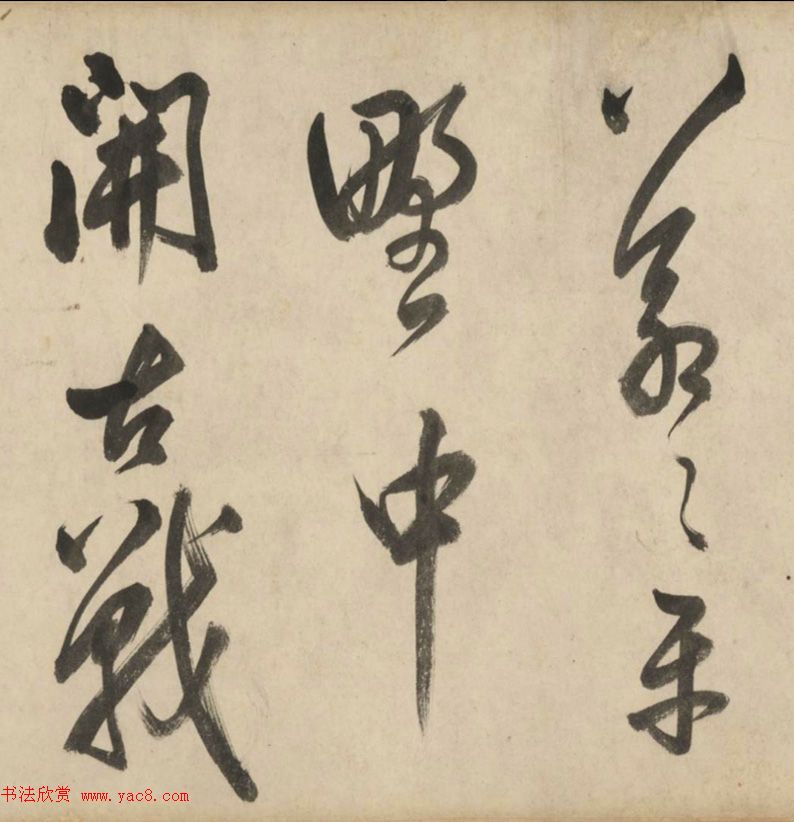 蒼〻平
野中
開古戰
书法欣赏 www.yac8.com